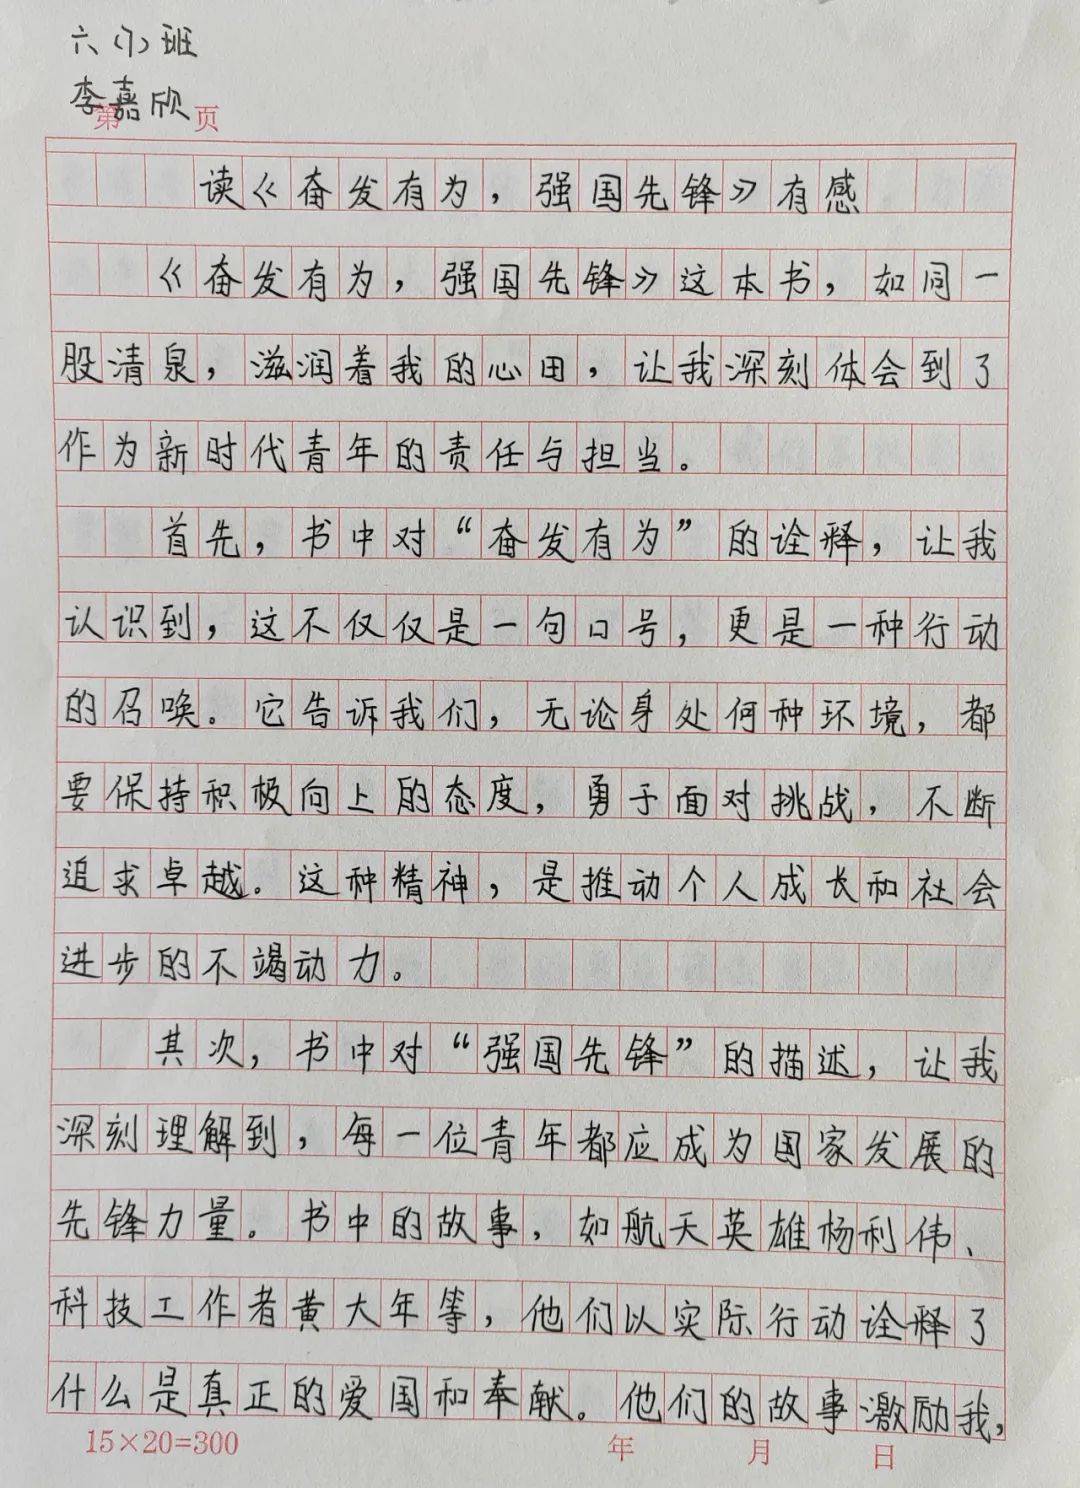 六(1)班
李嘉欣
第 页
读《奋发有为，强国先锋》有感
《奋发有为，强国先锋》这本书，如同一
股清泉，滋润着我的心田，让我深刻体会到了
作为新时代青年的责任与担当。
首先，书中对“奋发有为”的诠释，让我
认识到，这不仅仅是一句口号，更是一种行动
的召唤。它告诉我们，无论身处何种环境，都
要保持积极向上的态度，勇于面对挑战，不断
追求卓越。这种精神，是推动个人成长和社会
进步的不竭动力。
其次，书中对“强国先锋”的描述，让我
深刻理解到，每一位青年都应成为国家发展的
先锋力量。书中的故事，如航天英雄杨利伟、
科技工作者黄大年等，他们以实际行动诠释了
什么是真正的爱国和奉献。他们的故事激励我，
15×20=300 年 月 日